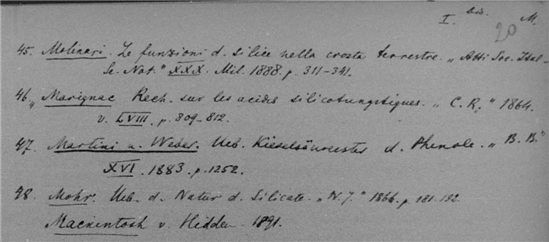 I. Bd. M.
20
45. Molinari. Le funzioni d. silice nella crosta terrestre. „Atti Soc. Ital.
Sc. Nat." XXX. Mil. 1888. p. 311-341.
46. „ Marignac Rech. sur les acides silicotungstiques. „C. R." 1864.
v. LVIII. p. 809-812.
47. Martini u. Weber. Ueb. Kieselsäureester d. Phenole. „B. B."
XVI. 1883. p. 1252.
48. Mohr. Ueb. d. Natur d. Silicate. „N. J." 1866. p. 181-192.
Mackintosh v. Hidden 1891.